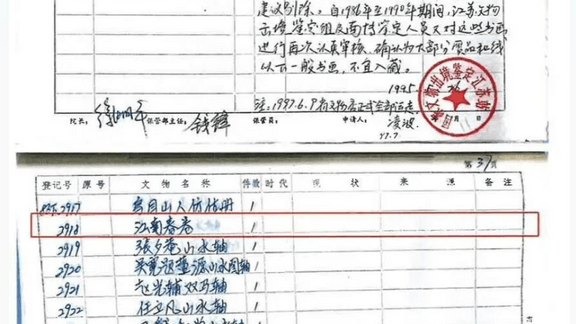 建议剔除。自1986年至1990年期间,江苏文物
出境鉴定组及面持鉴定人员又对这些书画
进行再次认真审核,确认为大部分赝品和线
以下一般书画,不宜入藏。
1995
注:1997.6.9
凌波
97.7
院长: 徐湖平 保管部主任: 钱锋 保管员: 申请人: 月 日
第31页
登记号 原号 文物名称 件数 时代 现状 来源 备注
2917 1
2918 江南春卷 1
2919 张夕庵山水轴 1
2920 吴宽题董源山水图轴 1
2921 赵光辅双马轴 1
2922 任立凡山水轴 1